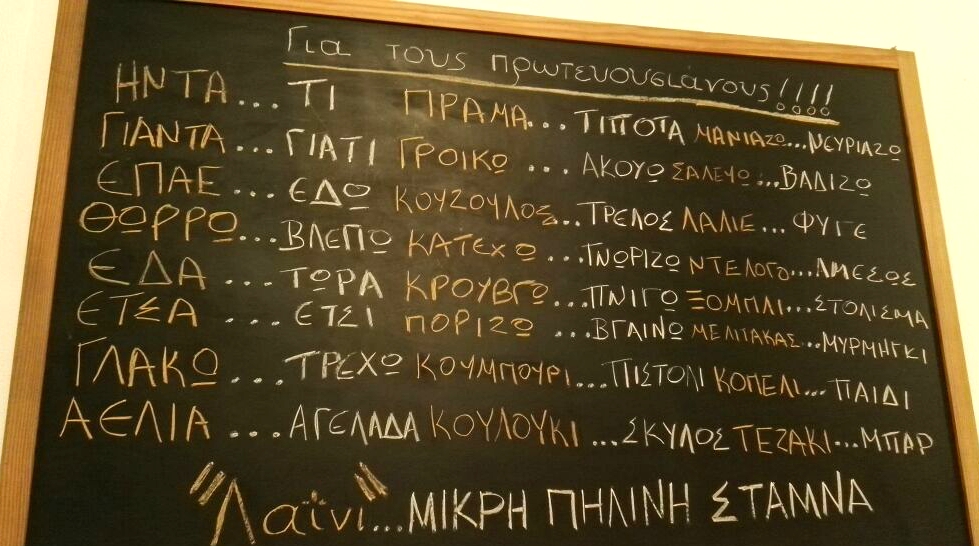 Για τους πρωτευουσιάνους!!!!
ΗΝΤΑ... ΤΙ ΠΡΑΜΑ... ΤΙΠΟΤΑ ΜΑΝΙΑΖΩ...ΝΕΥΡΙΑΖΩ
ΓΙΑΝΤΑ... ΓΙΑΤΙ ΓΡΟΙΚΩ ... ΑΚΟΥΩ ΣΑΛΕΥΩ...ΒΑΔΙΖΩ
ΕΠΑΕ... ΕΔΩ ΚΟΥΖΟΥΛΟΣ...ΤΡΕΛΟΣ ΛΑΛΙΕ... ΦΥΓΕ
ΘΩΡΡΩ...ΒΛΕΠΩ ΚΑΤΕΧΩ ...ΓΝΩΡΙΖΩ ΝΤΕΛΟΓΩ...ΑΜΕΣΩΣ
ΕΔΑ ... ΤΩΡΑ ΚΡΟΥΒΓΩ...ΠΝΙΓΩ ΞΟΜΠΛΙ...ΣΤΟΛΙΣΜΑ
ΕΤΣΑ .... ΕΤΣΙ ΠΟΡΙΖΩ ...ΒΓΑΙΝΩ ΜΕΛΙΤΑΚΑΣ...ΜΥΡΜΗΓΚΙ
ΓΛΑΚΩ.... ΤΡΕΧΩ ΚΟΥΜΠΟΥΡΙ...ΠΙΣΤΟΛΙ ΚΟΠΕΛΙ... ΠΑΙΔΙ
ΑΕΛΙΑ ... ΑΓΕΛΑΔΑ ΚΟΥΛΟΥΚΙ ...ΣΚΥΛΟΣ ΤΕΖΑΚΙ...ΜΠΑΡ
"Λαΐνι"...ΜΙΚΡΗ ΠΗΛΙΝΗ ΣΤΑΜΝΑ